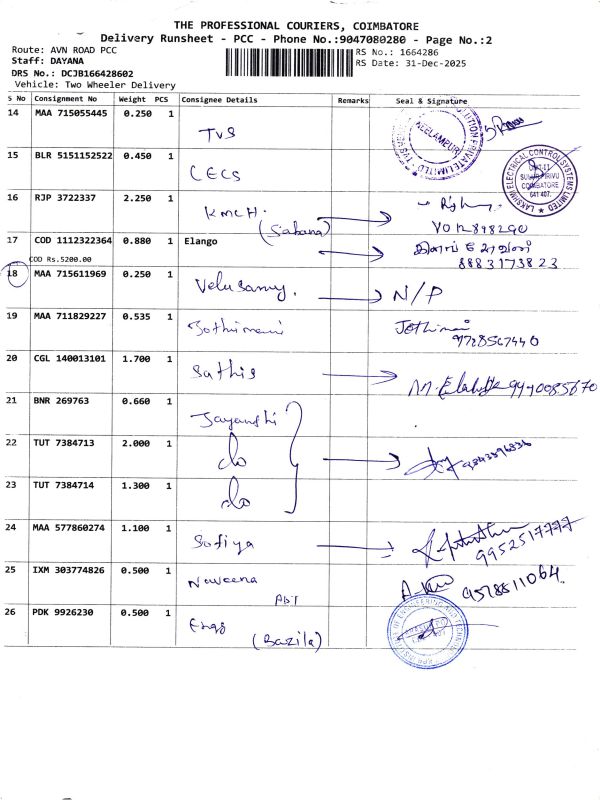 THE PROFESSIONAL COURIERS, COIMBATORE
Delivery Runsheet - PCC - Phone No.:9047080280 - Page No.:2
Route: AVN ROAD PCC
RS No.: 1664286
Staff: DAYANA
RS Date: 31-Dec-2025
DRS No.: DCJB166428602
Vehicle: Two Wheeler Delivery
S No Consignment No Weight PCS Consignee Details Remarks Seal & Signature
14 MAA 715055445 0.250 1 TVS
NEELAMEUR
15 BLR 5151152522 0.450 1 CECS
LAKSHMI ELECTRICAL CONTROL SYSTEMS LIMITED
COIMBATORE
641 407.
16 RJP 3722337 2.250 1 KMCH.
(Sabana)
17 COD 1112322364 0.880 1 Elango
COD Rs.5200.00
8883173823
18 MAA 715611969 0.250 1 Velusamy. N/P
19 MAA 711829227 0.535 1 Jothimani Jothimani
20 CGL 140013101 1.700 1 Sathis 9940085670
21 BNR 269763 0.660 1 Jayanshi
22 TUT 7384713 2.000 1 do
23 TUT 7384714 1.300 1 do
24 MAA 577860274 1.100 1 Sofiya
9952517777
25 IXM 303774826 0.500 1 Naveena 9578511064.
26 PDK 9926230 0.500 1 Engg
(Bazila)